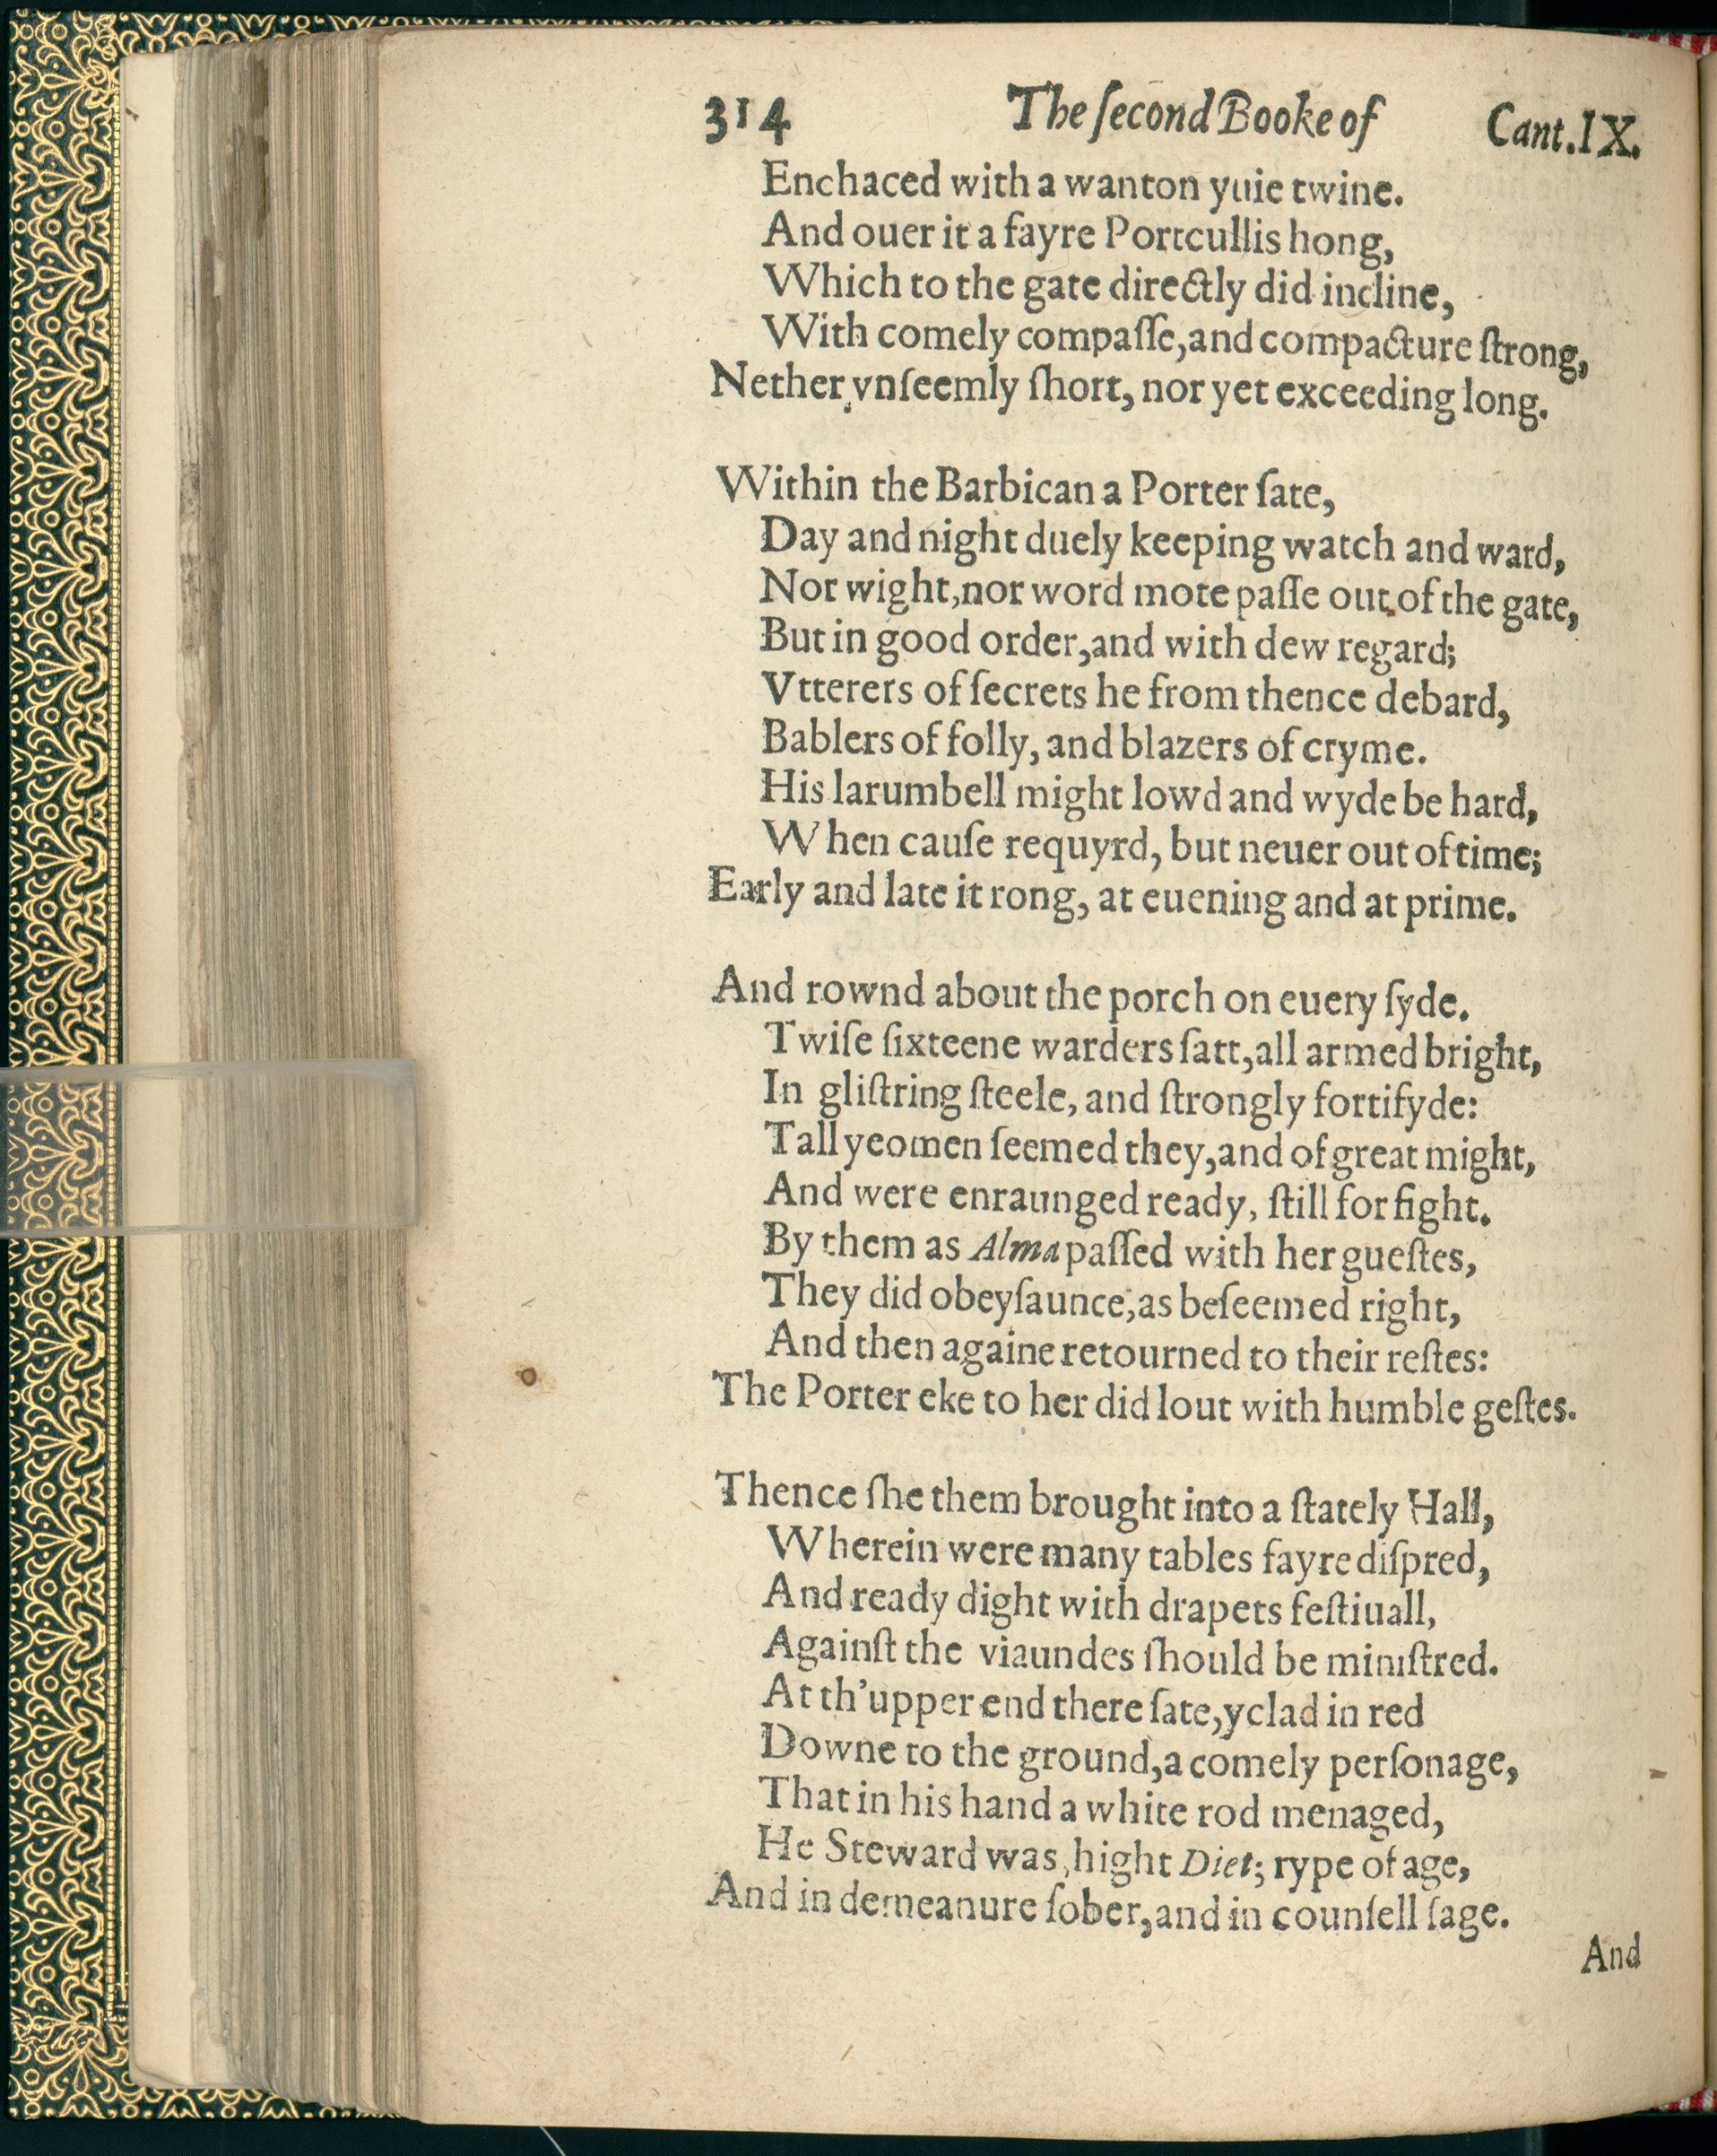 314 The ſecond Booke of Cant. IX.
Enchaced with a wanton yuie twine.
And ouer it a fayre Portcullis hong,
Which to the gate directly did incline,
With comely compaſſe, and compacture ſtrong,
Nether vnſeemly ſhort, nor yet exceeding long.
Within the Barbican a Porter ſate,
Day and night duely keeping watch and ward,
Nor wight, nor word mote paſſe out of the gate,
But in good order, and with dew regard;
Vtterers of ſecrets he from thence debard,
Bablers of folly, and blazers of cryme.
His larumbell might lowd and wyde be hard,
When cauſe requyrd, but neuer out of time;
Early and late it rong, at euening and at prime.
And rownd about the porch on euery ſyde.
Twiſe ſixteene warders ſatt, all armed bright,
In gliſtring ſteele, and ſtrongly fortifyde:
Tall yeomen ſeemed they, and of great might,
And were enraunged ready, ſtill for fight.
By them as Alma paſſed with her gueſtes,
They did obeyſaunce, as beſeemed right,
And then againe retourned to their reſtes:
The Porter eke to her did lout with humble geſtes.
Thence ſhe them brought into a ſtately Hall,
Wherein were many tables fayre diſpred,
And ready dight with drapets feſtiuall,
Againſt the viaundes ſhould be miniſtred.
At th'upper end there ſate, yclad in red
Downe to the ground, a comely perſonage,
That in his hand a white rod menaged,
He Steward was, hight Diet; rype of age,
And in demeanure ſober, and in counſell ſage.
And